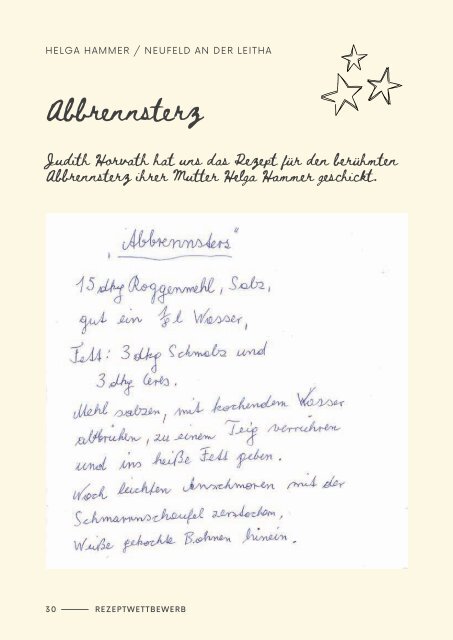 HELGA HAMMER / NEUFELD AN DER LEITHA
Abbrennsterz
Judith Horvath hat uns das Rezept für den berühmten
Abbrennsterz ihrer Mutter Helga Hammer geschickt.
„Abbrennsters“
15 dkg Roggenmehl, Salz,
gut ein l Wasser,
Fett: 3 dkg Schmalz und
3 dkg Ceres.
Mehl salzen, mit kochendem Wasser
abbrühen, zu einem Teig verrühren
und ins heiße Fett geben.
Nach leichten Anschmoren mit der
Schmarrnschaufel zerstochern,
Weiße gekochte Bohnen hinein.
30 REZEPTWETTBEWERB